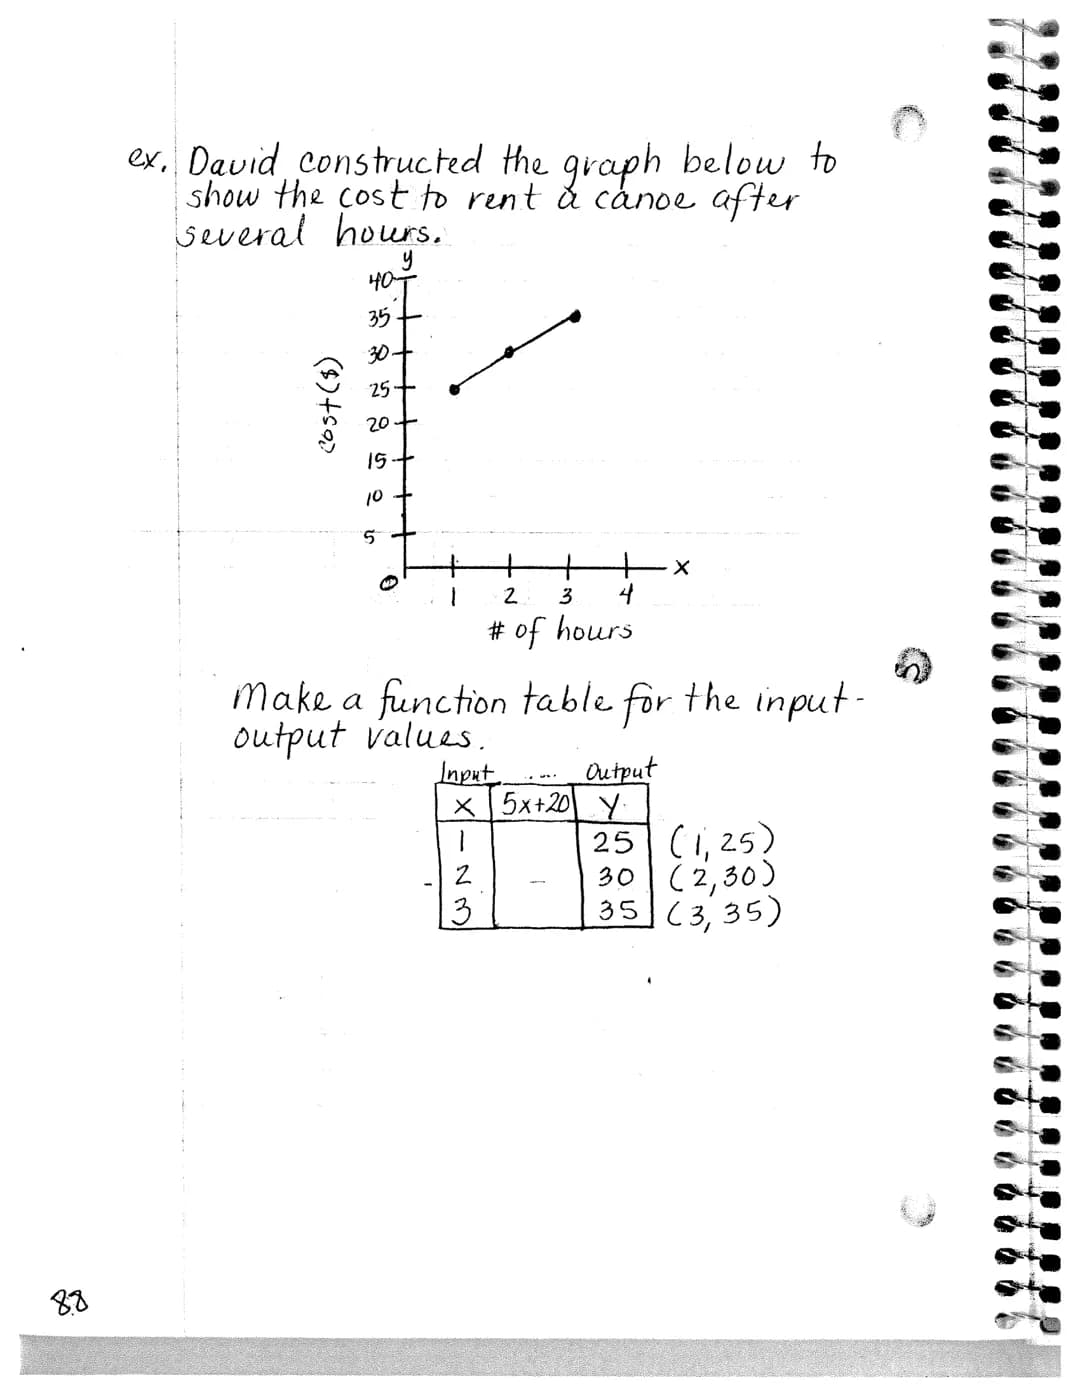 ex. David constructed the graph below to
show the cost to rent a canoe after
several hours.
y
40
35
30
25
20
15
10
5
0
cost ($)
1 2 3 4
x
# of hours
Make a function table for the input-
output values.
Input Output
x 5x+20 y
1 25 (1, 25)
2 30 (2, 30)
3 35 (3, 35)
88